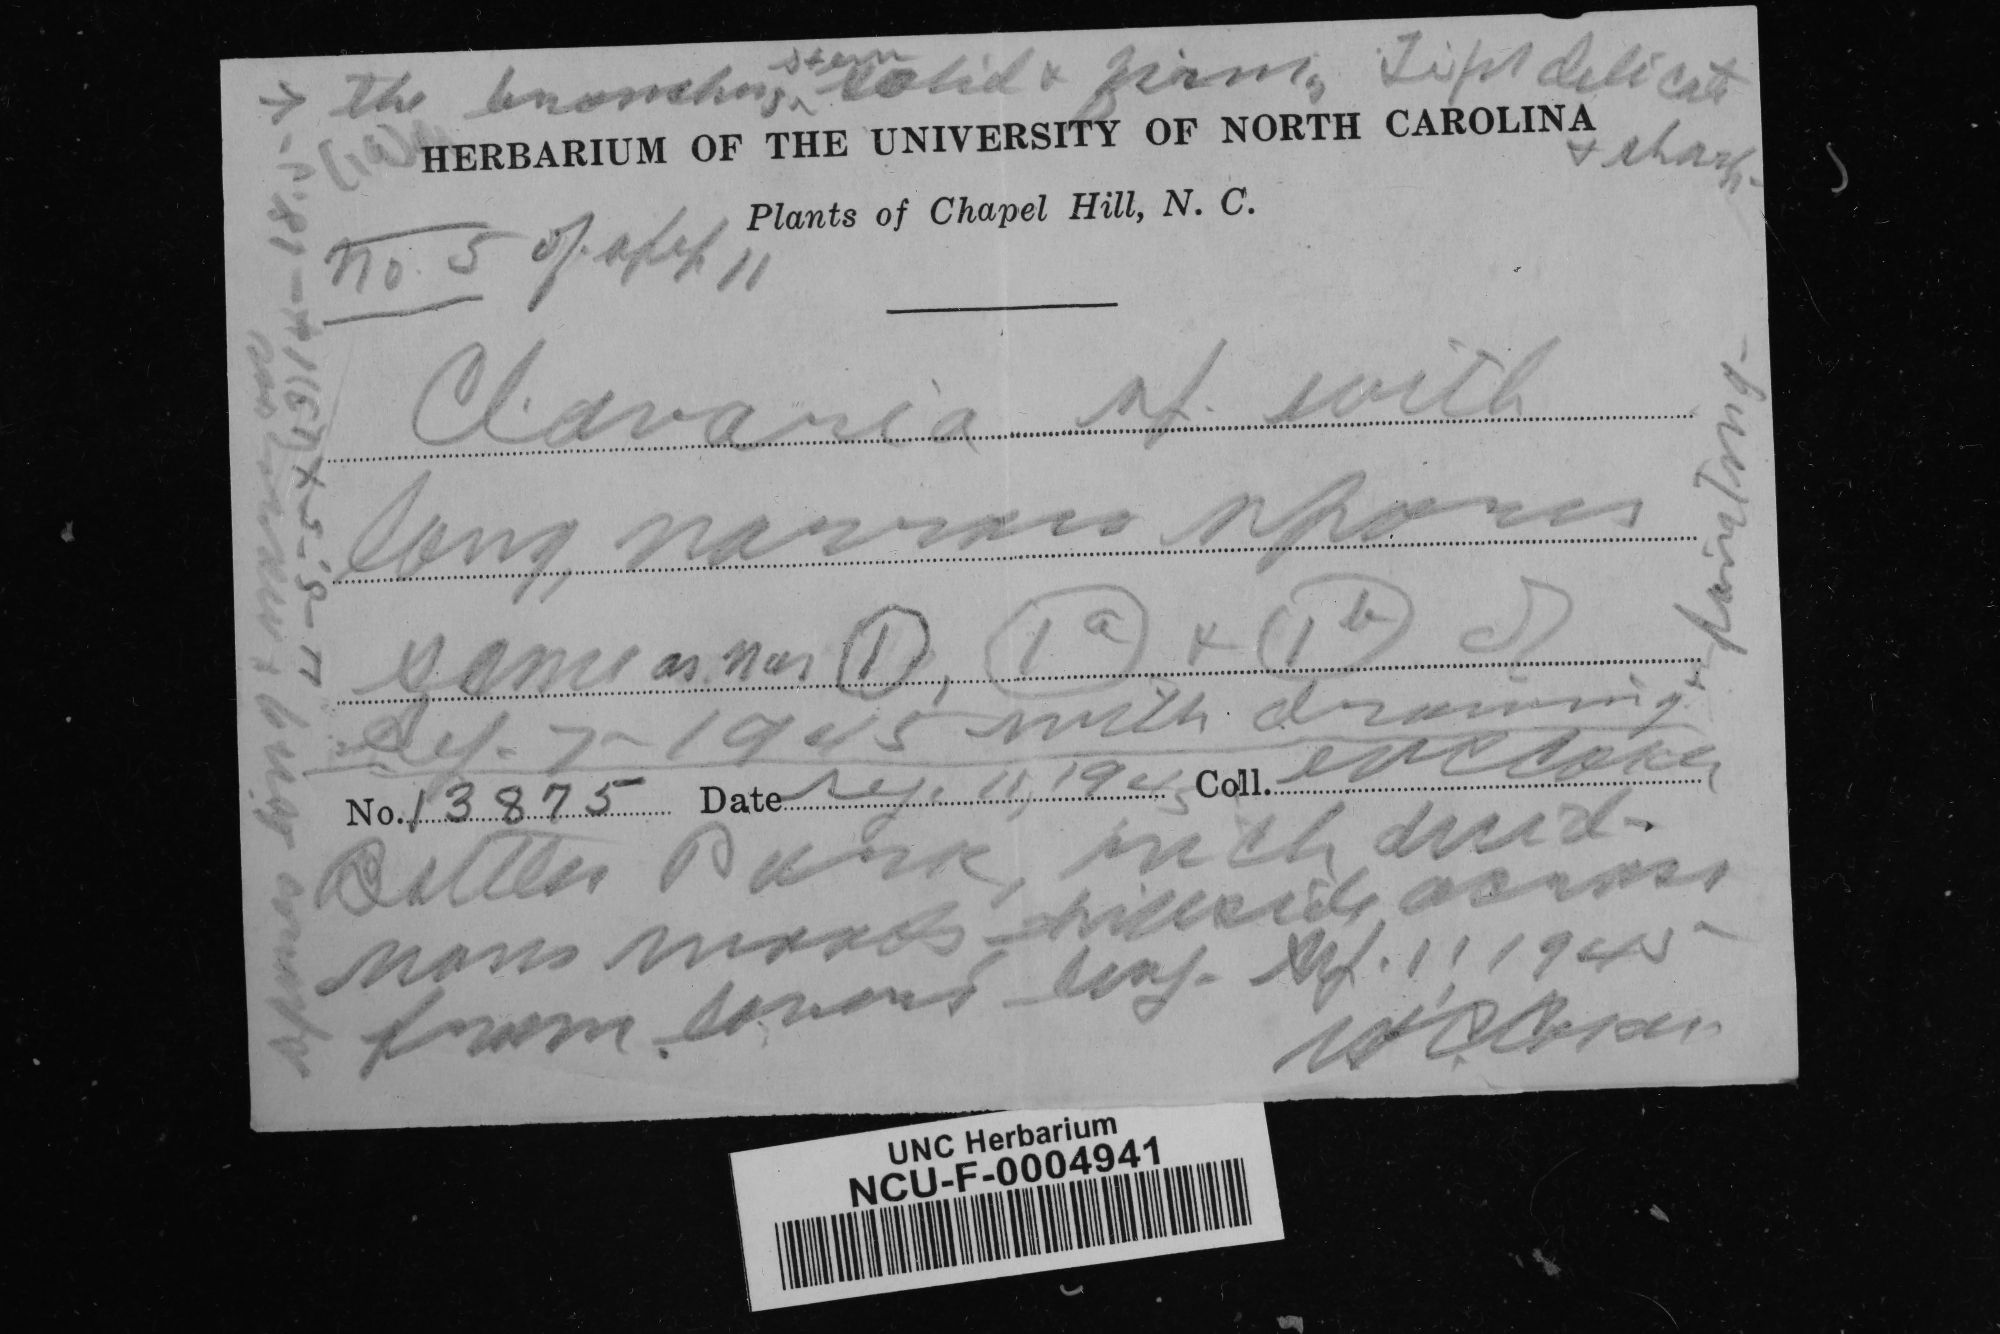 → the branches, stem solid & firm, Tips delicate
& sharp-
HERBARIUM OF THE UNIVERSITY OF NORTH CAROLINA
Plants of Chapel Hill, N. C.
No. 5 of Sept 11
Clavaria sp. with
long, narrow spores
same as nos 1, 1a & 1b of
Sep. 7- 1945 with drawing
& painting-
No. 13875 Date Sep. 11, 1945 Coll. W C Coker
Battle Park, rich decid-
uous woods hillside across
from
Sep. 11, 1945
W C Coker
UNC Herbarium
NCU-F-0004941